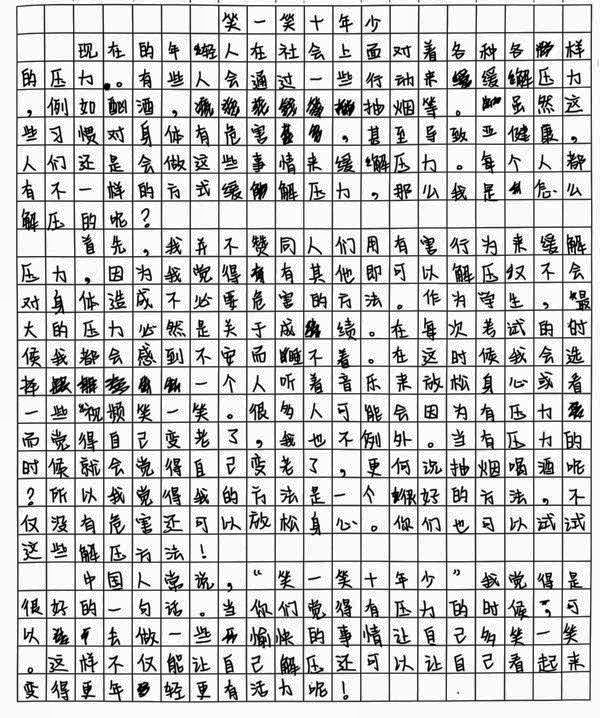 笑一笑十年少
现在的年轻人在社会上面对着各种各样
的压力。有些人会通过一些行动来缓解压力
,例如酗酒,抽烟等。虽然这
些习惯对身体有危害,甚至导致亚健康,
人们还是会做这些事情来缓解压力。每个人都
有不一样的方式缓解压力,那么我是怎么
解压的呢?
首先,我并不赞同人们用有害行为来缓解
压力,因为我觉得有其他即可以解压纹不会
对身体造成不必要危害的方法。作为学生,最
大的压力必然是关于成绩。在每次考试的时
候我都会感到不安而睡不着。在这时候我会选
择一个人听着音乐来放松身心或看
一些视频笑一笑。很多人可能会因为有压力
而觉得自己变老了,我也不例外。当有压力的
时候就会觉得自己变老了,更何况抽烟喝酒呢
?所以我觉得我的方法是一个很好的方法,不
仅没有危害还可以放松身心。你们也可以试试
这些解压方法!
中国人常说,“笑一笑十年少”我觉得是
很好的一句话。当你们觉得有压力的时候,可
以去做一些愉快的事情让自己多笑一笑
。这样不仅能让自己解压还可以让自己看起来
变得更年轻更有活力呢!